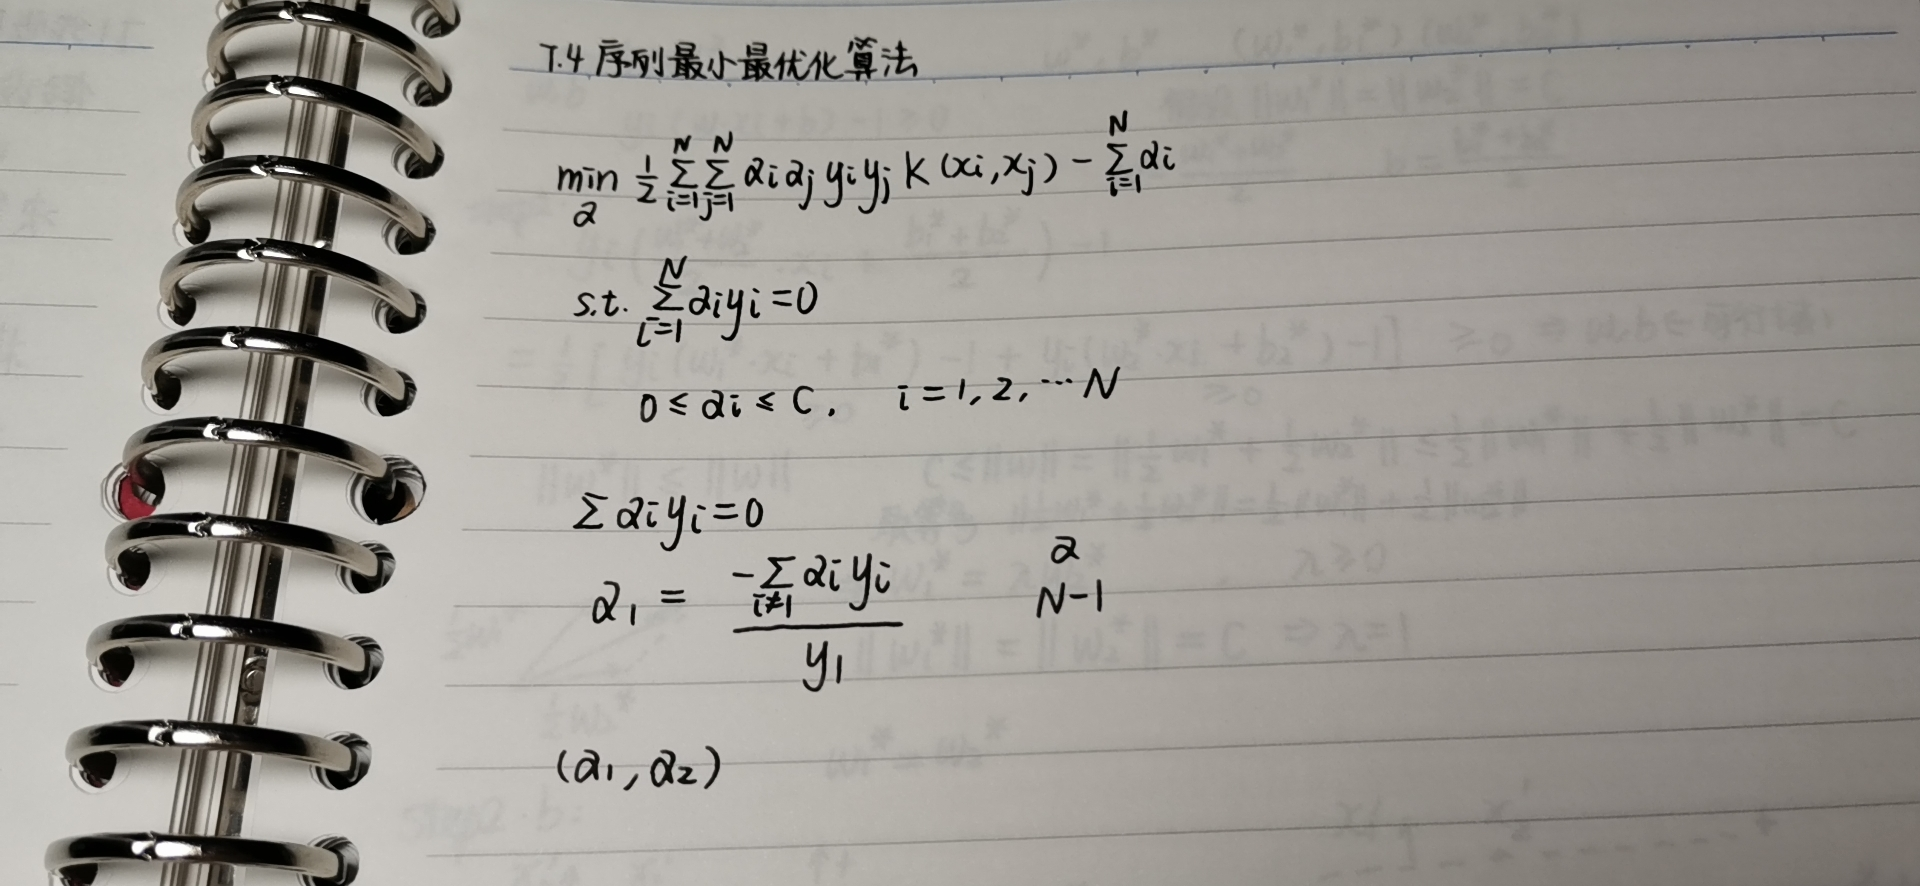 7.4 序列最小最优化算法
min_α 1/2 Σ_{i=1}^{N} Σ_{j=1}^{N} αi αj yi yj K(xi, xj) - Σ_{i=1}^{N} αi
s.t. Σ_{i=1}^{N} αi yi = 0
0 ≤ αi ≤ C, i = 1, 2, ⋯ N
Σ αi yi = 0
α1 = (-Σ_{i≠1} αi yi) / y1
α
N-1
(α1, α2)